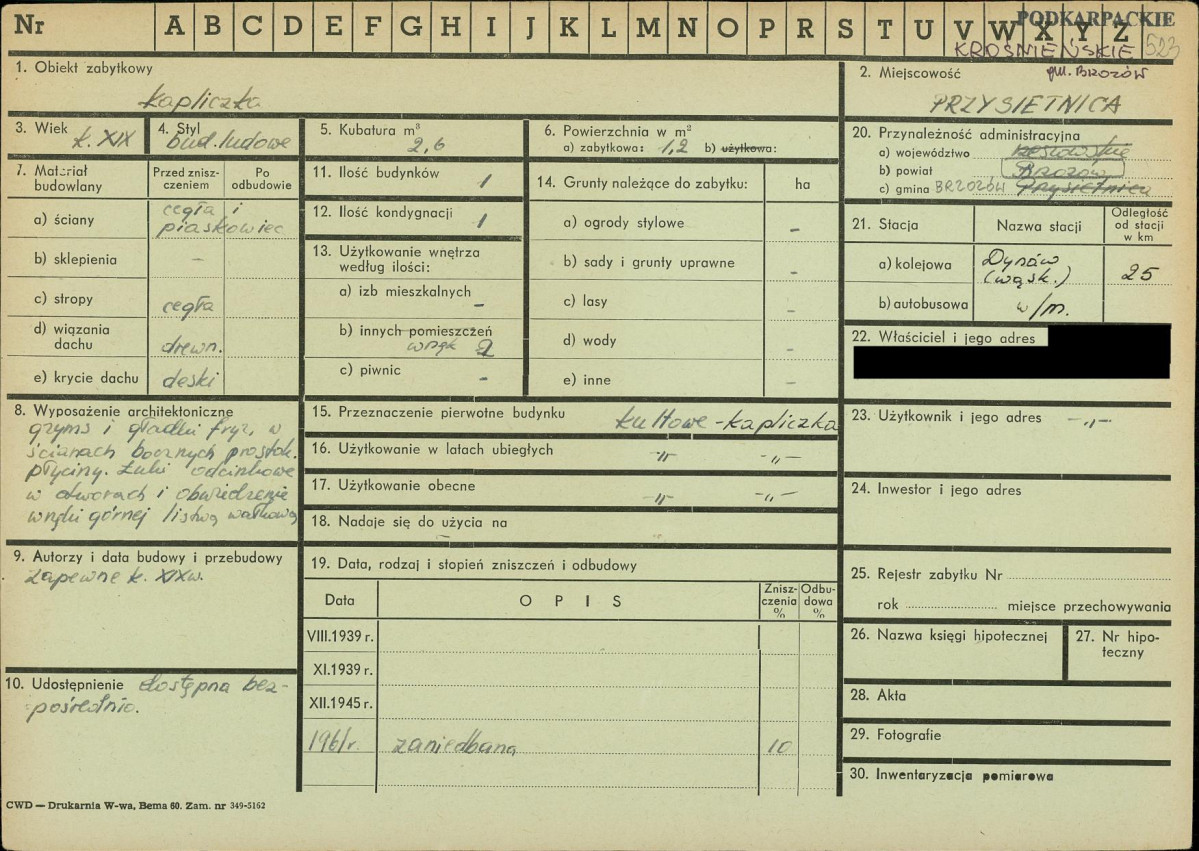 Nr A B C D E F G H I J K L M N O P R S T U V W X Y Z
PODKARPACKIE
KROŚNIEŃSKIE 523
gm. BRZOZÓW
1. Obiekt zabytkowy
kapliczka
2. Miejscowość
PRZYSIETNICA
3. Wiek
k. XIX
4. Styl
bud. ludowe
5. Kubatura m³
2,6
6. Powierzchnia w m²
a) zabytkowa: 1,2 b) użytkowa:
7. Materiał budowlany
Przed zniszczeniem
Po odbudowie
a) ściany
cegła i
piaskowiec
b) sklepienia –
c) stropy cegła
d) wiązania dachu drewn.
e) krycie dachu deski
8. Wyposażenie architektoniczne
gzyms i gładki fryz, w
ścianach bocznych prostok.
płyciny. Łuki odcinkowe
w otworach i obwiedzenie
wnęki górnej listwą wałkową
9. Autorzy i data budowy i przebudowy
zapewne k. XIXw.
10. Udostępnienie dostępna bez-
pośrednio.
11. Ilość budynków 1
12. Ilość kondygnacji 1
13. Użytkowanie wnętrza
według ilości:
a) izb mieszkalnych –
b) innych pomieszczeń
wnęk 2
c) piwnic –
14. Grunty należące do zabytku: ha
a) ogrody stylowe –
b) sady i grunty uprawne –
c) lasy
d) wody –
e) inne –
15. Przeznaczenie pierwotne budynku kultowe - kapliczka
16. Użytkowanie w latach ubiegłych –"– –"–
17. Użytkowanie obecne –"– –"–
18. Nadaje się do użycia na
–
19. Data, rodzaj i stopień zniszczeń i odbudowy
Data OPIS Zniszczenia % Odbudowa %
VIII.1939 r.
XI.1939 r.
XII.1945 r.
1961r. zaniedbana 10
20. Przynależność administracyjna
a) województwo rzeszowskie
b) powiat Brzozów
c) gmina BRZOZÓW Przysietnica
21. Stacja Nazwa stacji Odległość od stacji w km
a) kolejowa Dynów (wąsk.) 25
b) autobusowa w/m.
22. Właściciel i jego adres
23. Użytkownik i jego adres –"–
24. Inwestor i jego adres
25. Rejestr zabytku Nr
rok miejsce przechowywania
26. Nazwa księgi hipotecznej
27. Nr hipoteczny
28. Akta
29. Fotografie
30. Inwentaryzacja pomiarowa
CWD — Drukarnia W-wa, Bema 60. Zam. nr 349-5162